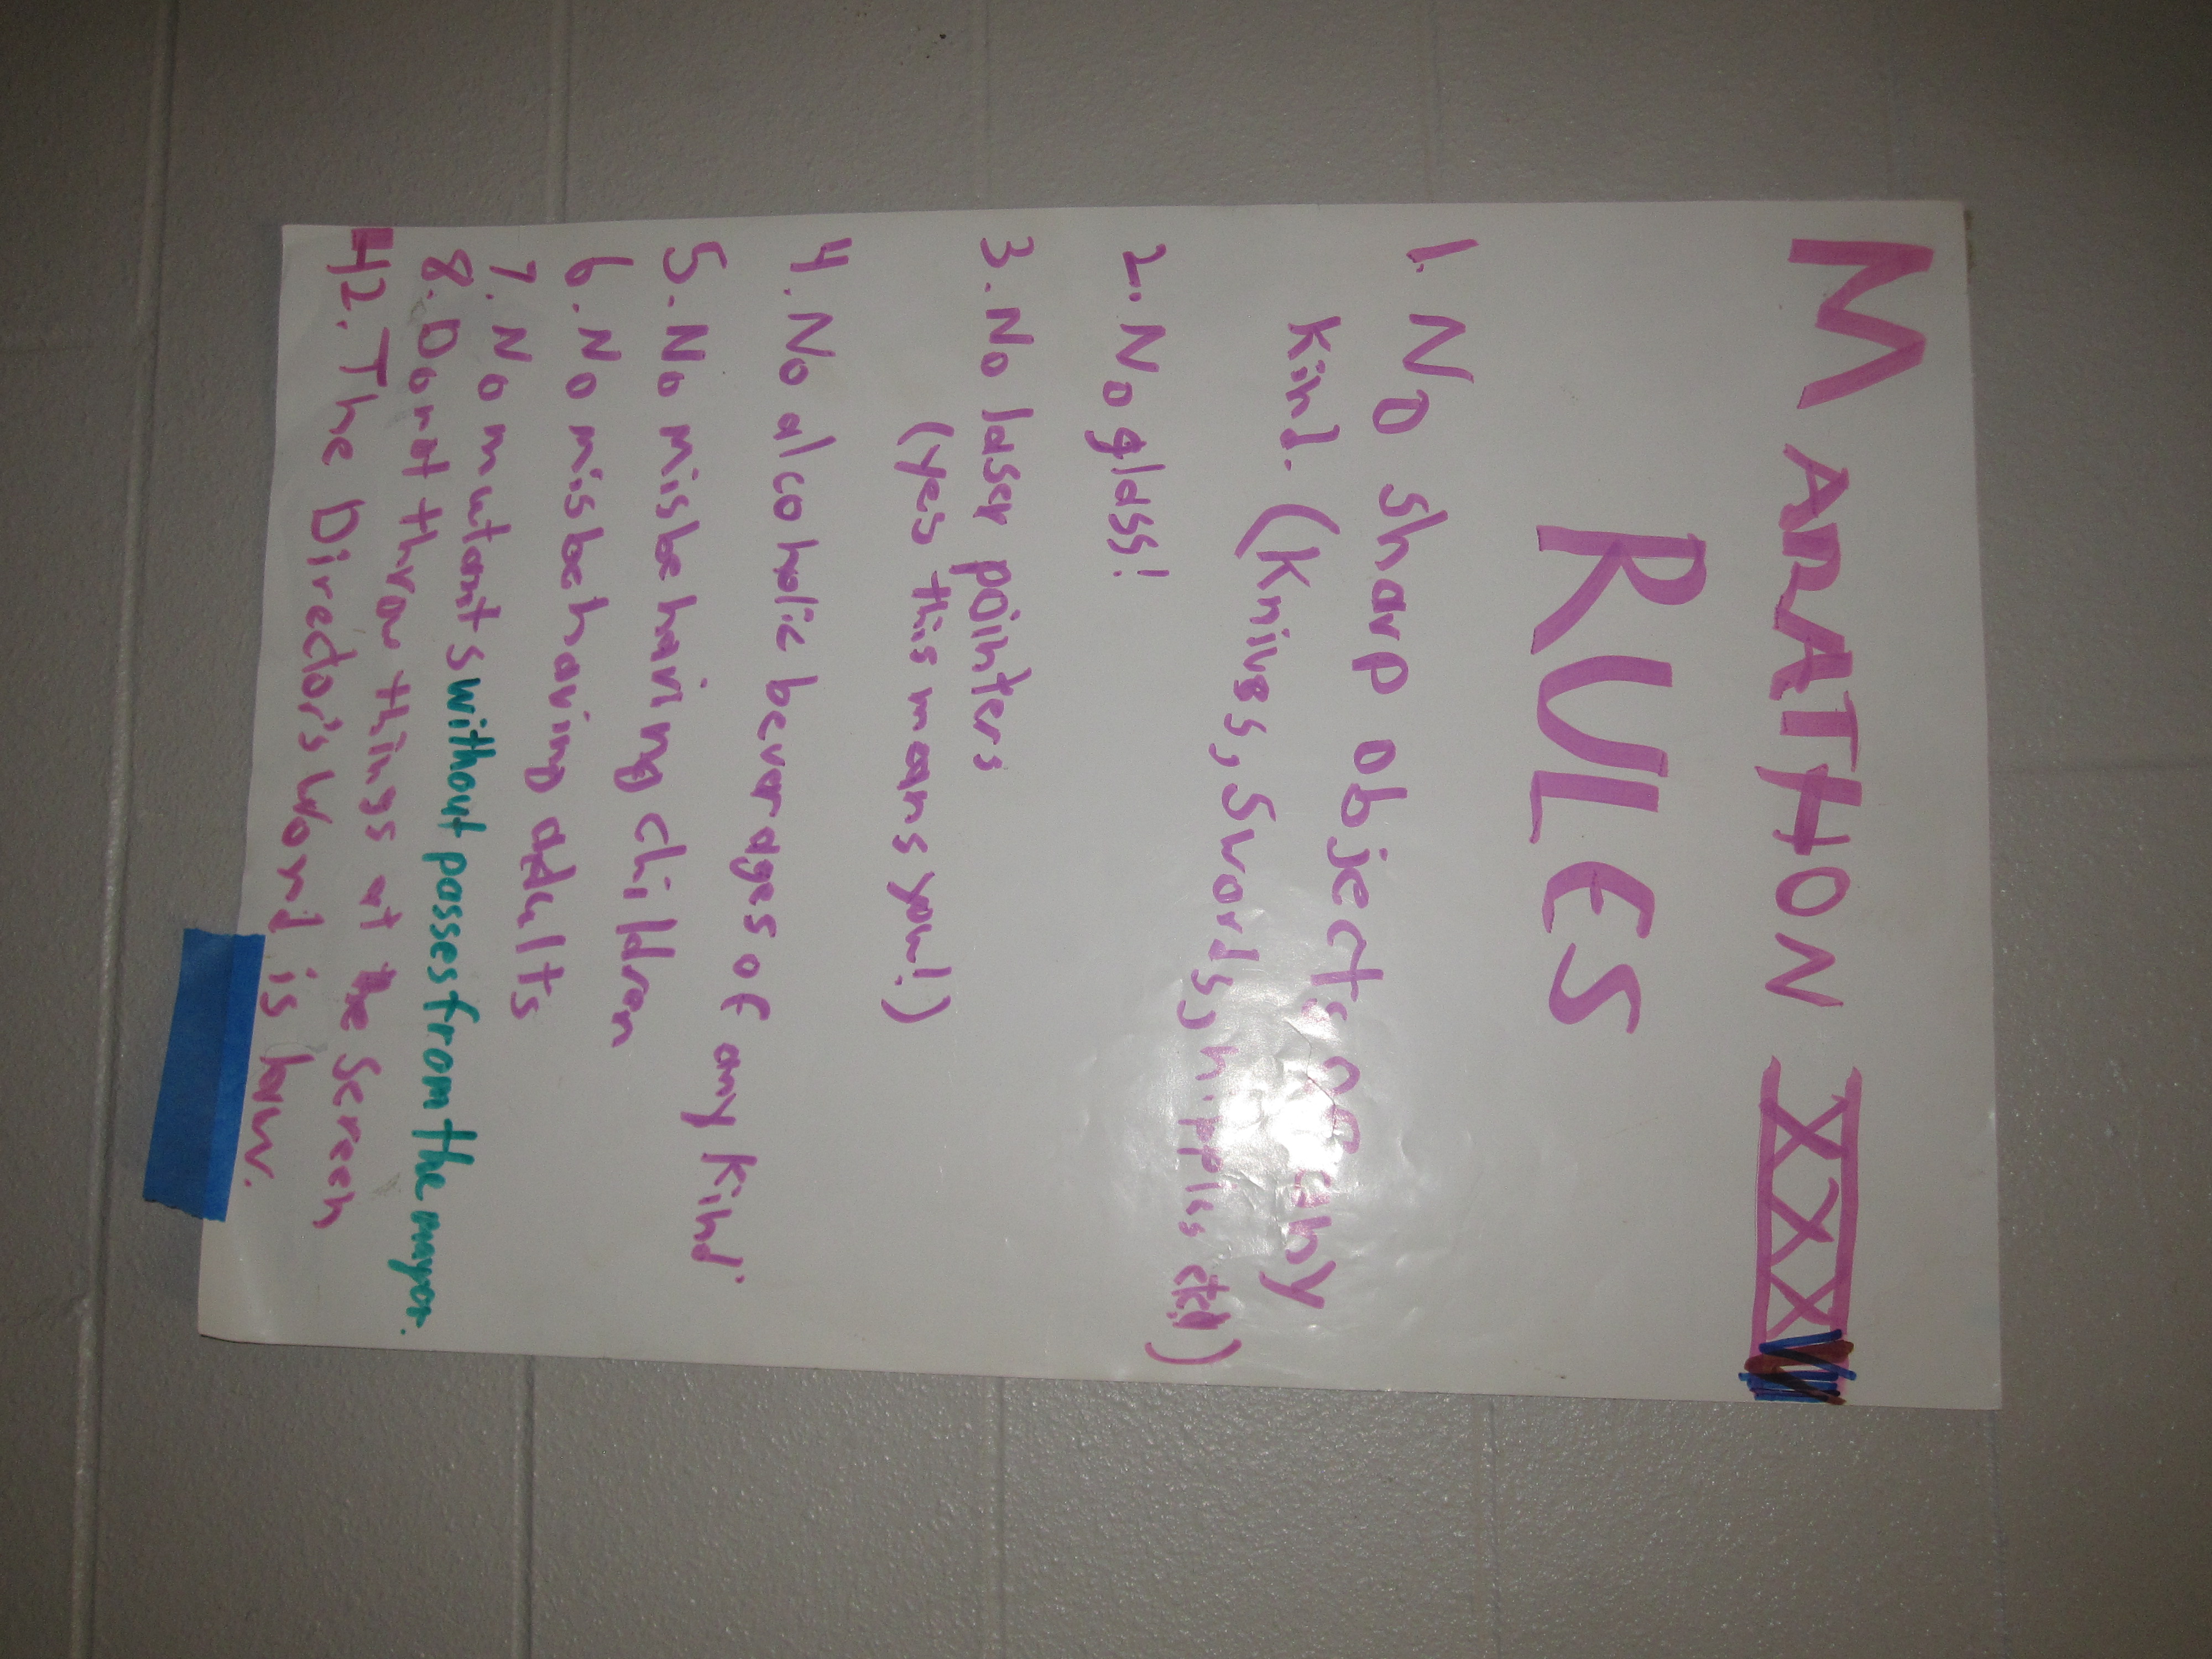 MARATHON XXX
RULES
1. No sharp objects of any
kind. (Knives, Swords, nipples etc.)
2. No glass!
3. No laser pointers
(yes this means you!)
4. No alcoholic beverages of any kind.
5. No misbehaving children
6. No misbehaving adults
7. No mutants without passes from the mayor.
8. Do not throw things at the Screen
42. The Director's word is law.